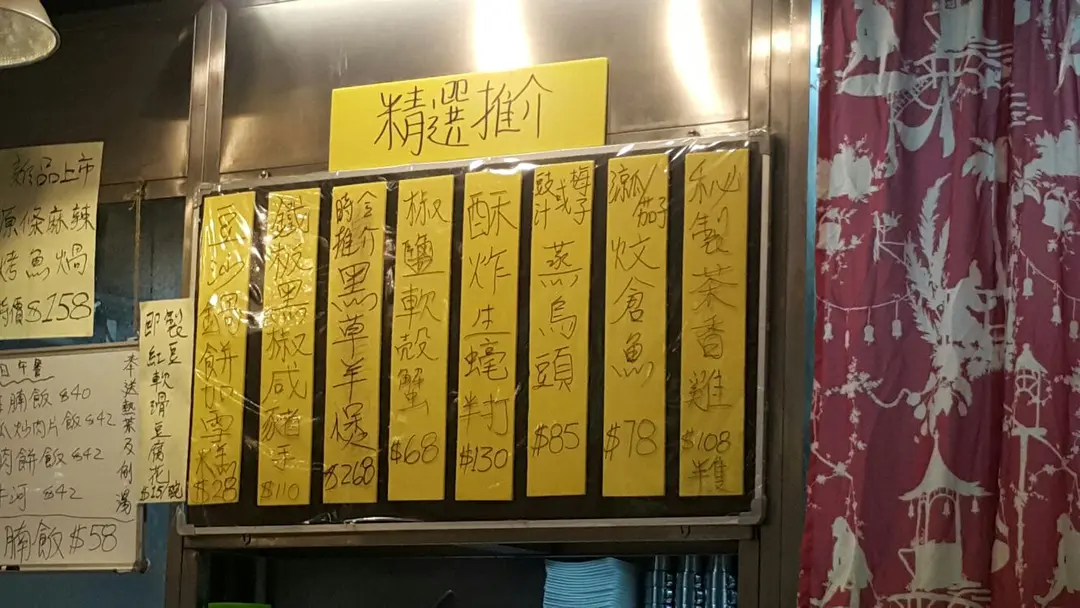 精選推介
秘製茶香雞
$108
半隻
涼瓜/茄子
炆倉魚
$78
豉汁或梅子
蒸烏頭
$85
酥炸生蠔半打
$130
椒鹽軟殼蟹
$68
時令推介
黑草羊煲
$268
鐵板黑椒咸豬手
$110
豆沙鍋餅加雪糕
$28
新品上市
原條麻辣
烤魚煱
特價$158
即製
紅豆
軟滑豆腐花
$15/碗
奉送熱茶及例湯
腩飯 $40
瓜炒肉片飯 $42
肉餅飯 $42
牛河 $42
腩飯 $58